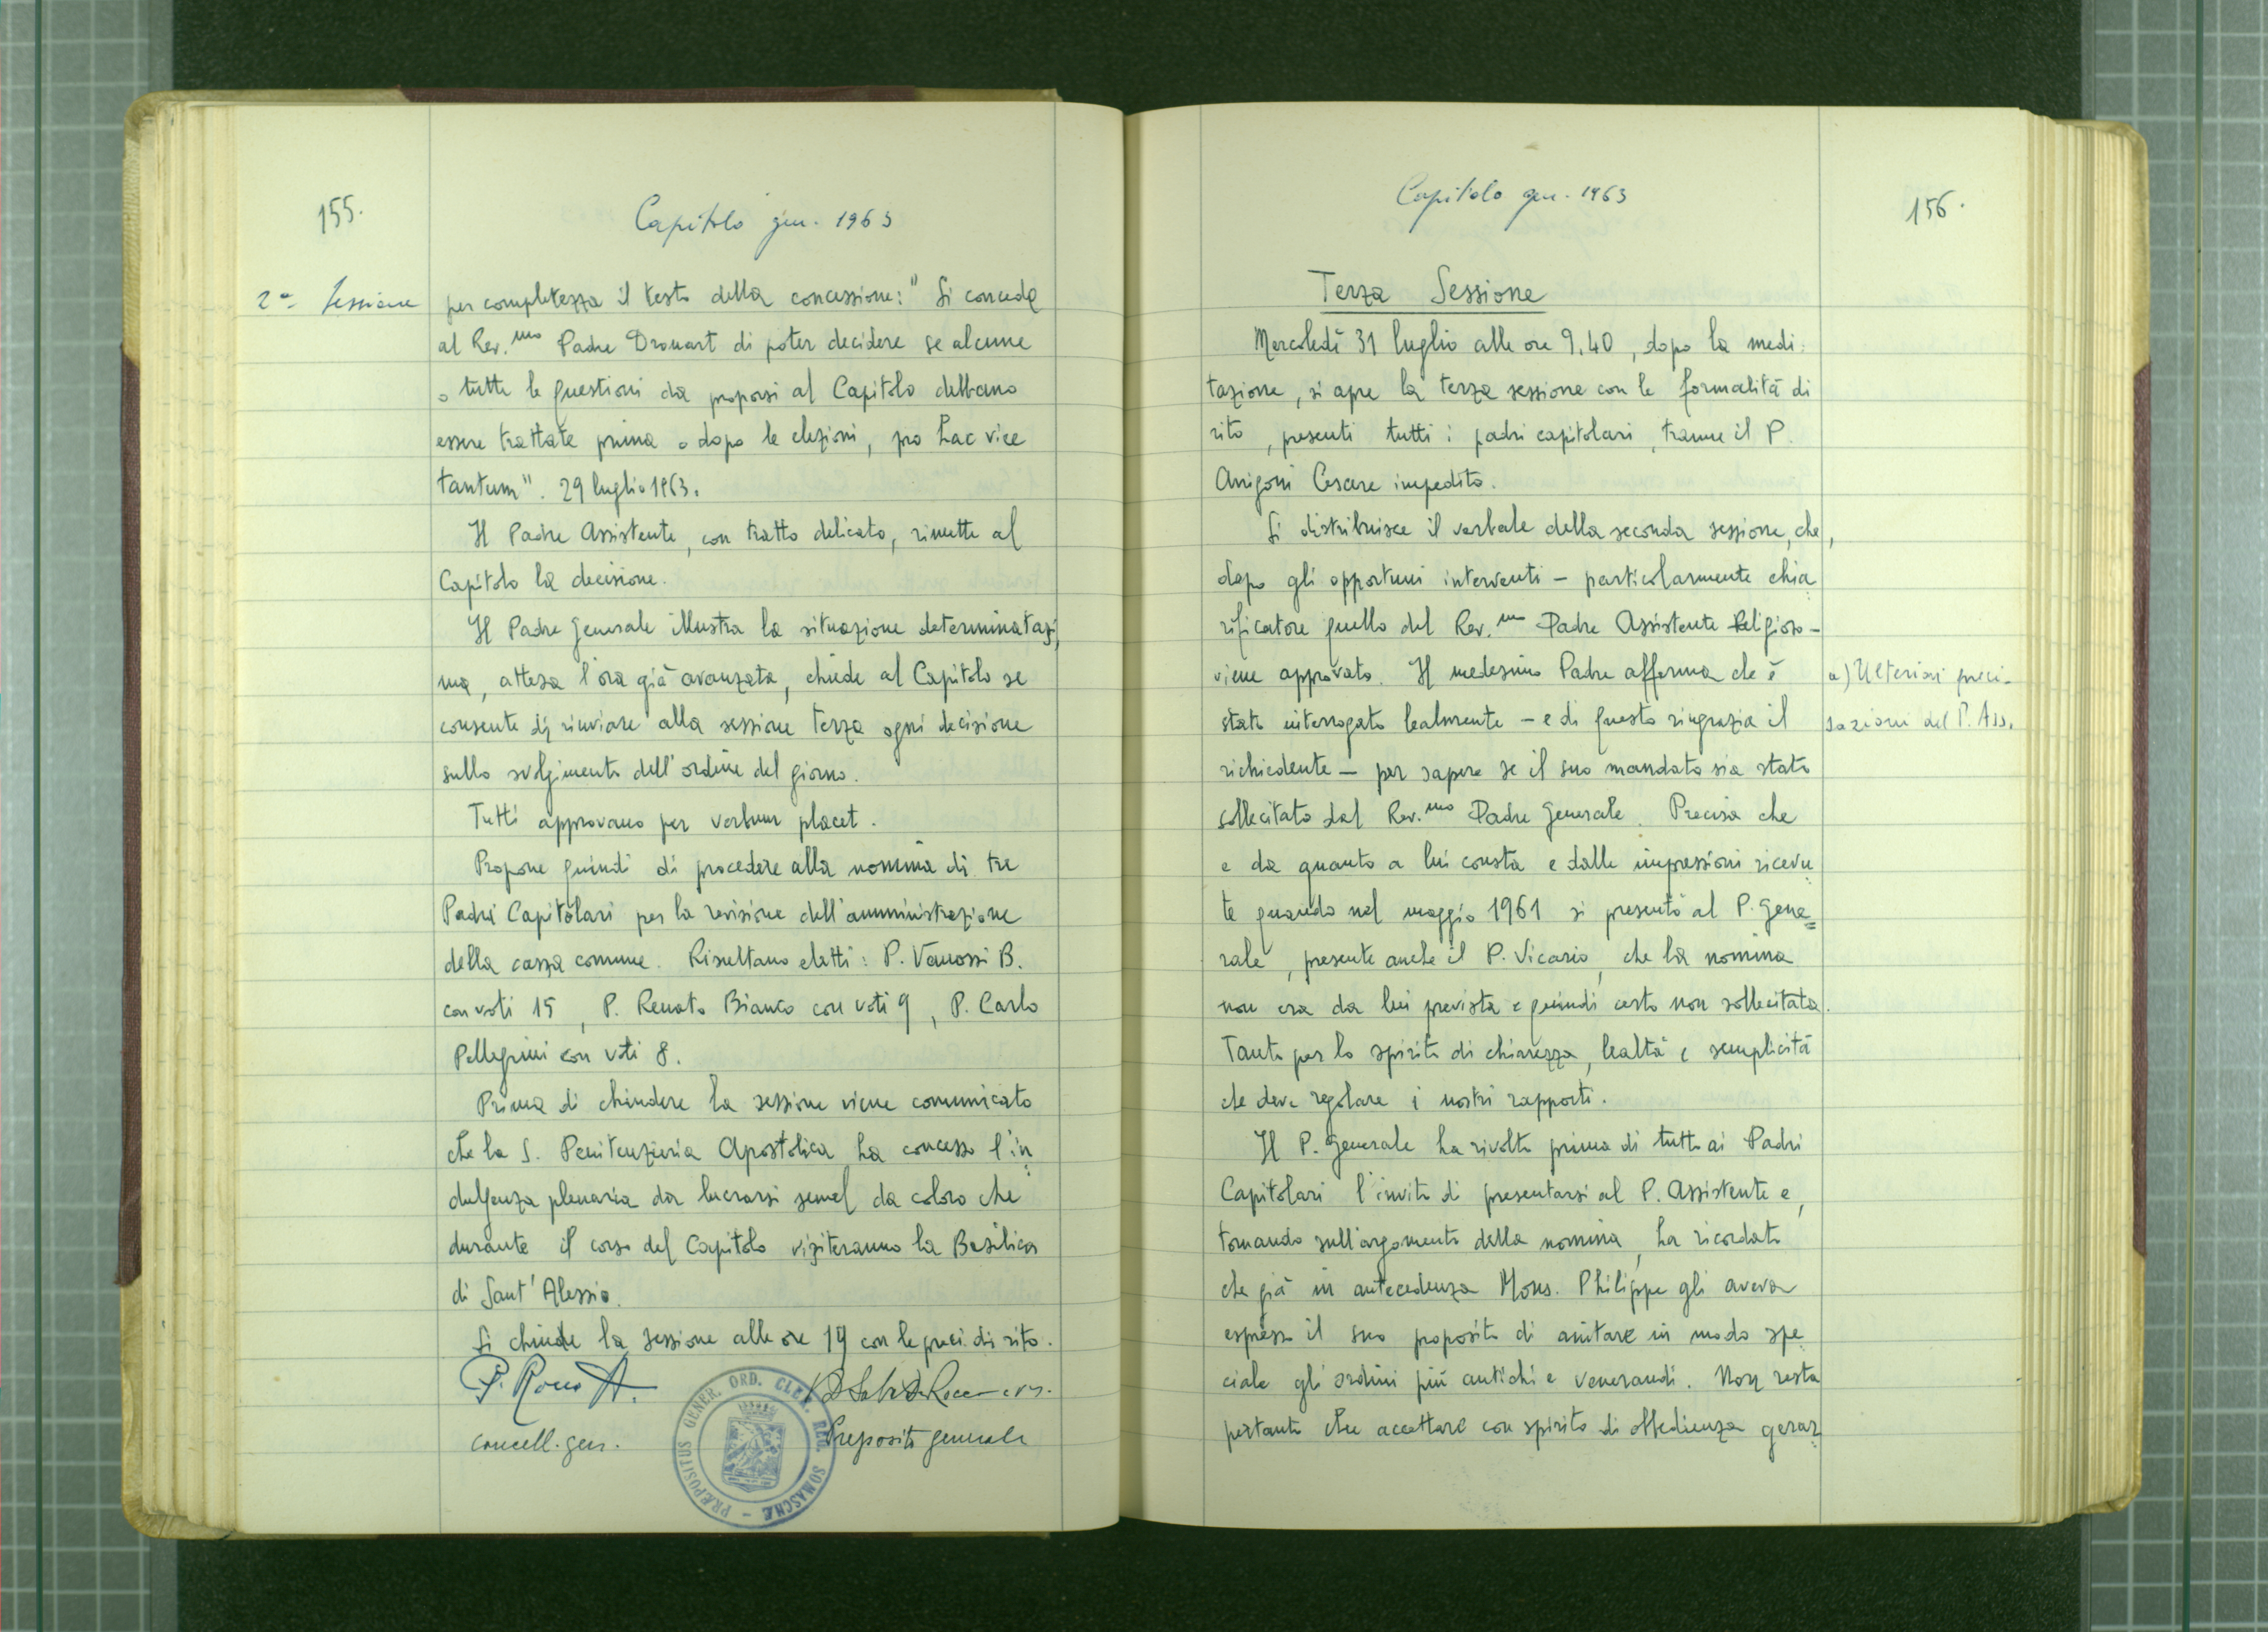 155.
Capitolo gen. 1963
2a Sessione
per completezza il testo della concessione: "Si concede
al Rev.mo Padre Drouart di poter decidere se alcune
o tutte le questioni da proporsi al Capitolo debbano
essere trattate prima o dopo le elezioni, pro hac vice
tantum". 29 luglio 1963.
Il Padre Assistente, con tratto delicato, rimette al
Capitolo la decisione.
Il Padre Generale illustra la situazione determinatasi,
ma, attesa l'ora già avanzata, chiede al Capitolo se
consente di rinviare alla sessione terza ogni decisione
sullo svolgimento dell'ordine del giorno.
Tutti approvano per verbum placet.
Propone quindi di procedere alla nomina di tre
Padri Capitolari per la revisione dell'amministrazione
della cassa comune. Risultano eletti: P. Vanossi B.
con voti 15, P. Renato Bianco con voti 9, P. Carlo
Pellegrini con voti 8.
Prima di chiudere la sessione viene comunicato
che la S. Penitenzieria Apostolica ha concesso l'in
dulgenza plenaria da lucrarsi semel da coloro che
durante il corso del Capitolo visiteranno la Basilica
di Sant'Alessio.
Si chiude la sessione alle ore 19 con le preci di rito.
cancell. gen.
Preposito generale
PRÆPOSITUS GENER. ORD. CLER. REG. SOMASCHÆ -
Capitolo gen. 1963
156.
Terza Sessione
Mercoledì 31 luglio alle ore 9.40, dopo la medi:
tazione, si apre la terza sessione con le formalità di
rito, presenti tutti i padri capitolari, tranne il P.
Arrigoni Cesare impedito.
Si distribuisce il verbale della seconda sessione, che,
dopo gli opportuni interventi - particolarmente chia
rificatore quello del Rev.mo Padre Assistente Religioso -
viene approvato. Il medesimo Padre afferma che è
a) Ulteriori preci-
stato interrogato lealmente - e di questo ringrazia il
sazioni del P. Ass.
richiedente - per sapere se il suo mandato sia stato
sollecitato dal Rev.mo Padre Generale. Precisa che
e da quanto a lui consta e dalle impressioni ricevu
te quando nel maggio 1961 si presentò al P. Gene=
rale, presente anche il P. Vicario, che la nomina
non era da lui prevista e quindi certo non sollecitata.
Tanto per lo spirito di chiarezza, lealtà e semplicità
che deve regolare i nostri rapporti.
Il P. Generale ha rivolto prima di tutto ai Padri
Capitolari l'invito di presentarsi al P. Assistente e,
tornando sull'argomento della nomina, ha ricordato
che già in antecedenza Mons. Philippe gli aveva
espresso il suo proposito di aiutare in modo spe
ciale gli ordini più antichi e venerandi. Non resta
pertanto che accettare con spirito di obbedienza gerar